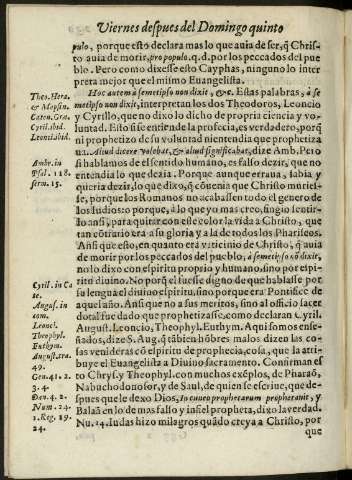 Viernes despues del Domingo quinto
pulo, porque esto declara mas lo que auia de ser, q̃ Chris-
to auia de morir, pro populo. q. d. por los peccados del pue
blo. Pero como dixesse esto Cayphas, ninguno lo inter
preta mejor que el mismo Euangelista.
Hoc autem à semetipso non dixit, &c. Estas palabras, à se
metipso non dixit, interpretan los dos Theodoros, Leoncio
y Cyrillo, que no dixo lo dicho de propria ciencia y vo-
luntad. Esto si se entiende la profecia, es verdadero, porq̃
ni prophetizo de su voluntad ni entendia que prophetiza
ua. Aliud dicere volebat, & aliud significabat, dize Amb. Pero
si hablamos de el sentido humano, es falso dezir, que no
entendia lo que dezia. Porque aunque erraua, sabia y
queria dezir, lo que dixo, q̃ cõuenia que Christo muries-
se, porque los Romanos no acabassen todo el genero de
los Iudios: o porque, à lo que yo mas creo, fingio sentir-
lo ansi, para quitar con este color la vida a Christo, que
tan cõtrario era a su gloria y a la de todos los Phariseos.
Ansi que esto, en quanto era vaticinio de Christo, q̃ auia
de morir por los peccados del pueblo, à semetipso nõ dixit,
no lo dixo con espiritu proprio y humano, sino por espi-
ritu diuino. No porq̃ el fuesse digno de que hablasse por
su lengua el diuino espiritu, sino porque era Pontifice de
aquel año. Ansi que no a sus meritos, sino al officio sacer
dotal fue dado que prophetizasse, como declaran Cyril.
August. Leoncio, Theophyl. Euthym. Aqui somos ense-
ñados, dize S. Aug. q̃ tãbien hõbres malos dizen las co-
sas venideras cõ espiritu de prophecia, cosa, que la atri-
buye el Euangelista a Diuino sacramento. Confirman es
to Chrys. y Theophyl. con muchos exẽplos, de Pharaõ,
Nabuchodonosor, y de Saul, de quien se escriue, que de-
spues que le dexo Dios, In cuneo prophetarum prophetauit, y
Balaã en lo de mas falso y infiel propheta, dixo la verdad.
Nu. 24. Iudas hizo milagros quãdo creya a Christo, por
que
Theo. Hera.
& Mopsin.
Caten. Græ.
Cyril. ibid.
Leonci. ibid.
Ambr. in
Psal. 118.
serm. 15.
Cyril. in Ca
te.
August. in
com.
Leonci.
Theophyl.
Euthym.
August. tra.
49.
Gen. 41. 2.
3. 4.
Dan. 4. 2.
Num. 24.
1. Reg. 19.
24.